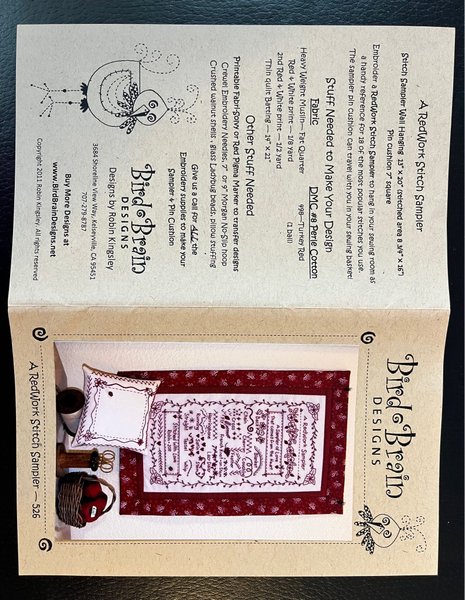 A RedWork Stitch Sampler
Stitch Sampler Wall Hanging 13" x 20" (stitched area 8 3/4" x 16")
Pin cushion 7" square
Embroider a RedWork Stitch Sampler to hang in your sewing room as
a handy reference for 18 of the most popular stitches you use.
The sampler pin cushion can travel with you in your sewing basket!
Stuff Needed to Make Your Design
Fabric
Heavy Weight Muslin— Fat Quarter
Red & White print — 1/8 Yard
2nd Red & White print — 1/2 Yard
Thin quilt Batting — 14" x 21"
DMC #8 Perle Cotton
498—Turkey Red
(1 ball)
Other Stuff Needed
Printable Fabri-Solvy or Red Pigma Marker to transfer designs
Crewel Embroidery Needles, 7" or 9" Morgan No-Slip hoop
Crushed walnut shells , glass Ladybug beads, pillow stuffing
Give us a call for ALL the
Embroidery supplies to make your
Sampler & Pin Cushion
Bird Brain
DESIGNS
Designs by Robin Kingsley
3684 Shoreline View Way, Kelseyville, CA 95451
707-279-8787
Buy More Designs at
www.BirdBrainDesigns.net
Copyright 2011, Robin Kingsley, All rights reserved
Bird Brain
DESIGNS
A RedWork Sampler
A RedWork Stitch Sampler — 526